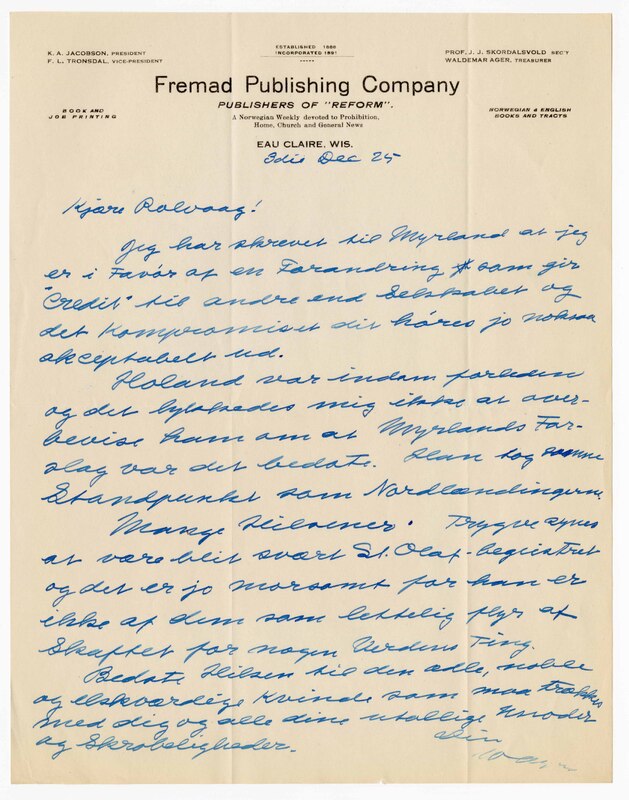 K. A. JACOBSON, PRESIDENT
F. L. TRONSDAL, VICE-PRESIDENT
ESTABLISHED 1888
INCORPORATED 1891
PROF. J. J. SKORDALSVOLD SEC'Y
WALDEMAR AGER, TREASURER
Fremad Publishing Company
PUBLISHERS OF "REFORM".
BOOK AND
JOB PRINTING
A Norwegian Weekly devoted to Prohibition,
Home, Church and General News
NORWEGIAN & ENGLISH
BOOKS AND TRACTS
EAU CLAIRE, WIS.
3die Dec 25
Kjære Rolvaag!
Jeg har skrevet til Myrland at jeg
er i Favør af en Forandring som gir
"Credit" til andre end Selskabet og
det Kompromiset dit høres jo noksaa
akceptabelt ud.
Holand var indom forleden
og det lykkedes mig ikke at over-
bevise ham om at Myrlands For-
slag var det bedste. Han tog samme
Standpunkt som Nordlændingerne.
Mange Hilsener. Trygve synes
at være blit svært St. Olaf-begeistret
og det er jo morsomt for han er
ikke af dem som lettelig flyr af
Skaftet for nogen Verdens Ting.
Bedste Hilsen til den ædle, noble
og elskværdige Kvinde som maa trækkes
med dig og alle dine utallige Unoder
og Skrøbeligheder.
Din